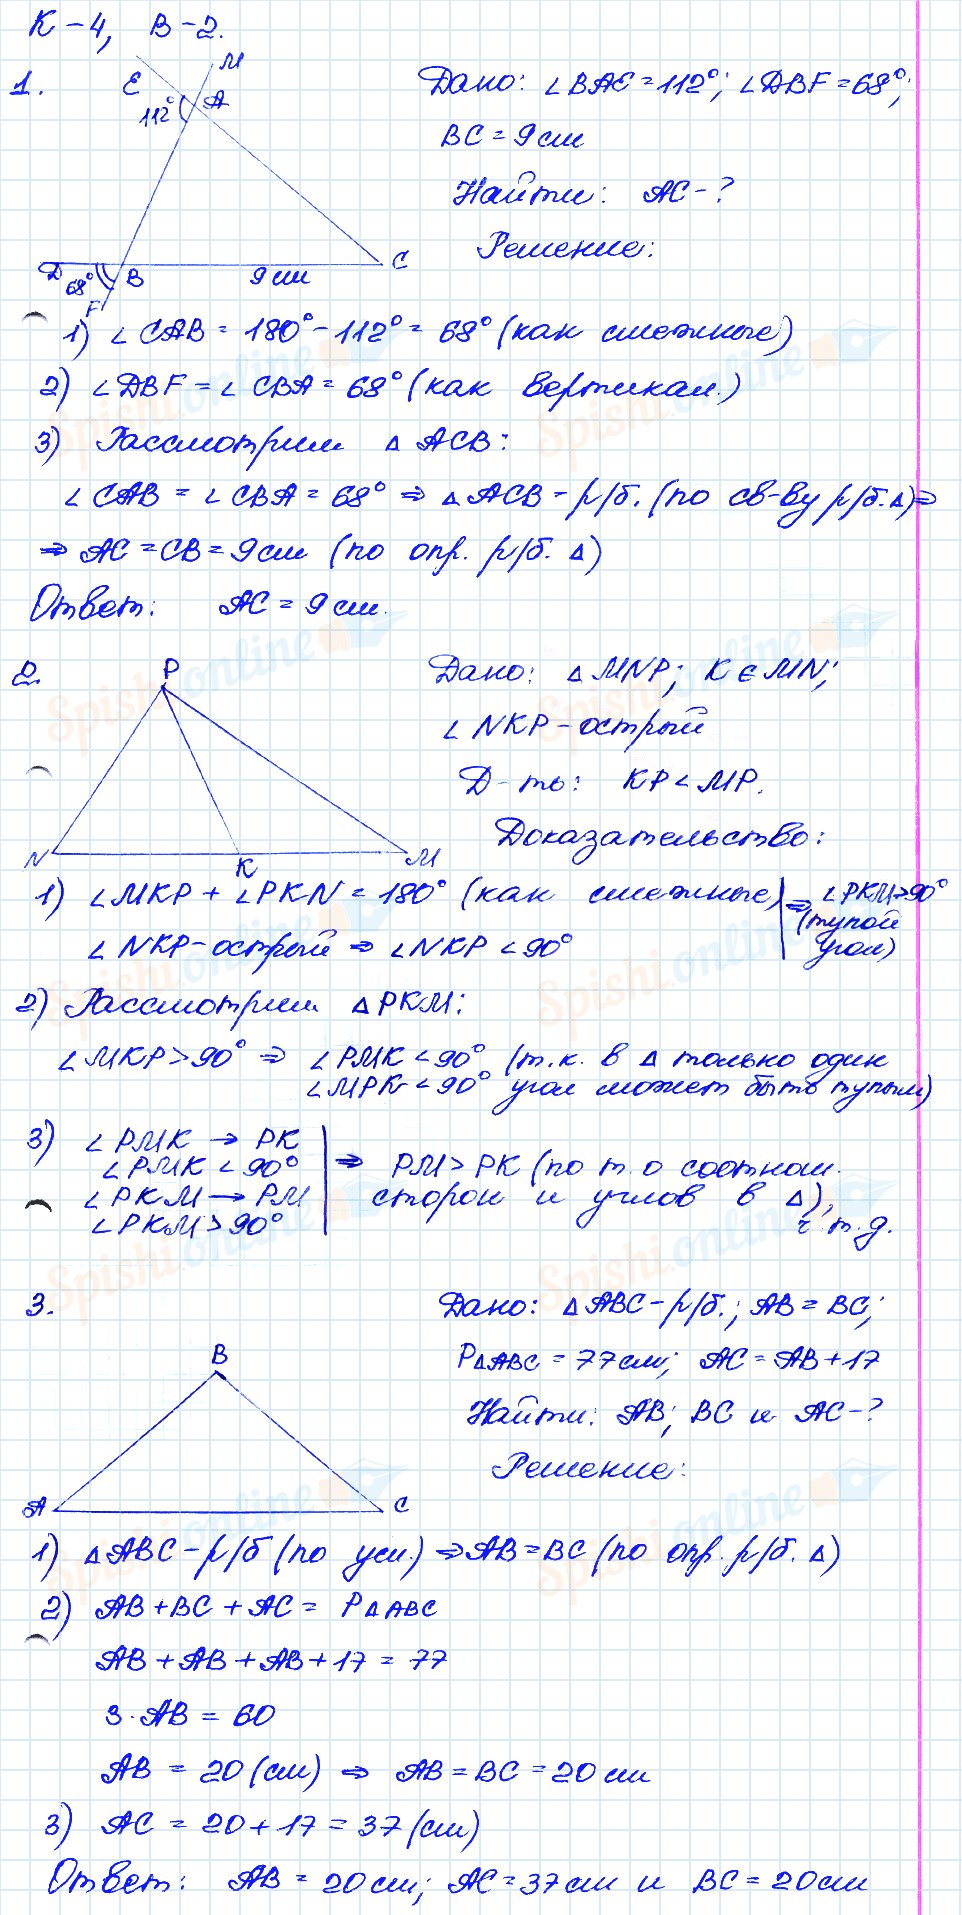 К-4, В-2.
1.
E
M
112°
A
D
68°
B
9 см
C
F
Дано: ∠BAE = 112°; ∠DBF = 68°;
BC = 9 см
Найти: AC - ?
Решение:
1) ∠CAB = 180° - 112° = 68° (как смежные)
2) ∠DBF = ∠CBA = 68° (как вертикал.)
3) Рассмотрим △ACB:
∠CAB = ∠CBA = 68° ⇒ △ACB - р/б. (по св-ву р/б. △) ⇒
⇒ AC = CB = 9 см (по опр. р/б. △)
Ответ: AC = 9 см.
2.
P
N
K
M
Дано: △MNP; K ∈ MN;
∠NKP - острый
Д-ть: KP < MP.
Доказательство:
1) ∠MKP + ∠PKN = 180° (как смежные) | ⇒ ∠PKM > 90°
∠NKP - острый ⇒ ∠NKP < 90° | (тупой угол)
2) Рассмотрим △PKM:
∠MKP > 90° ⇒ ∠PMK < 90° (т.к. в △ только один
∠MPK < 90° угол может быть тупым)
3) ∠PMK → PK
∠PMK < 90°
∠PKM → PM
∠PKM > 90°
⇒ PM > PK (по т. о соотнош.
сторон и углов в △),
ч.т.д.
3.
B
A
C
Дано: △ABC - р/б.; AB = BC;
P△ABC = 77 см; AC = AB + 17
Найти: AB; BC и AC - ?
Решение:
1) △ABC - р/б (по усл.) ⇒ AB = BC (по опр. р/б. △)
2) AB + BC + AC = P△ABC
AB + AB + AB + 17 = 77
3 · AB = 60
AB = 20 (см) ⇒ AB = BC = 20 см
3) AC = 20 + 17 = 37 (см)
Ответ: AB = 20 см; AC = 37 см и BC = 20 см
Spishi.online